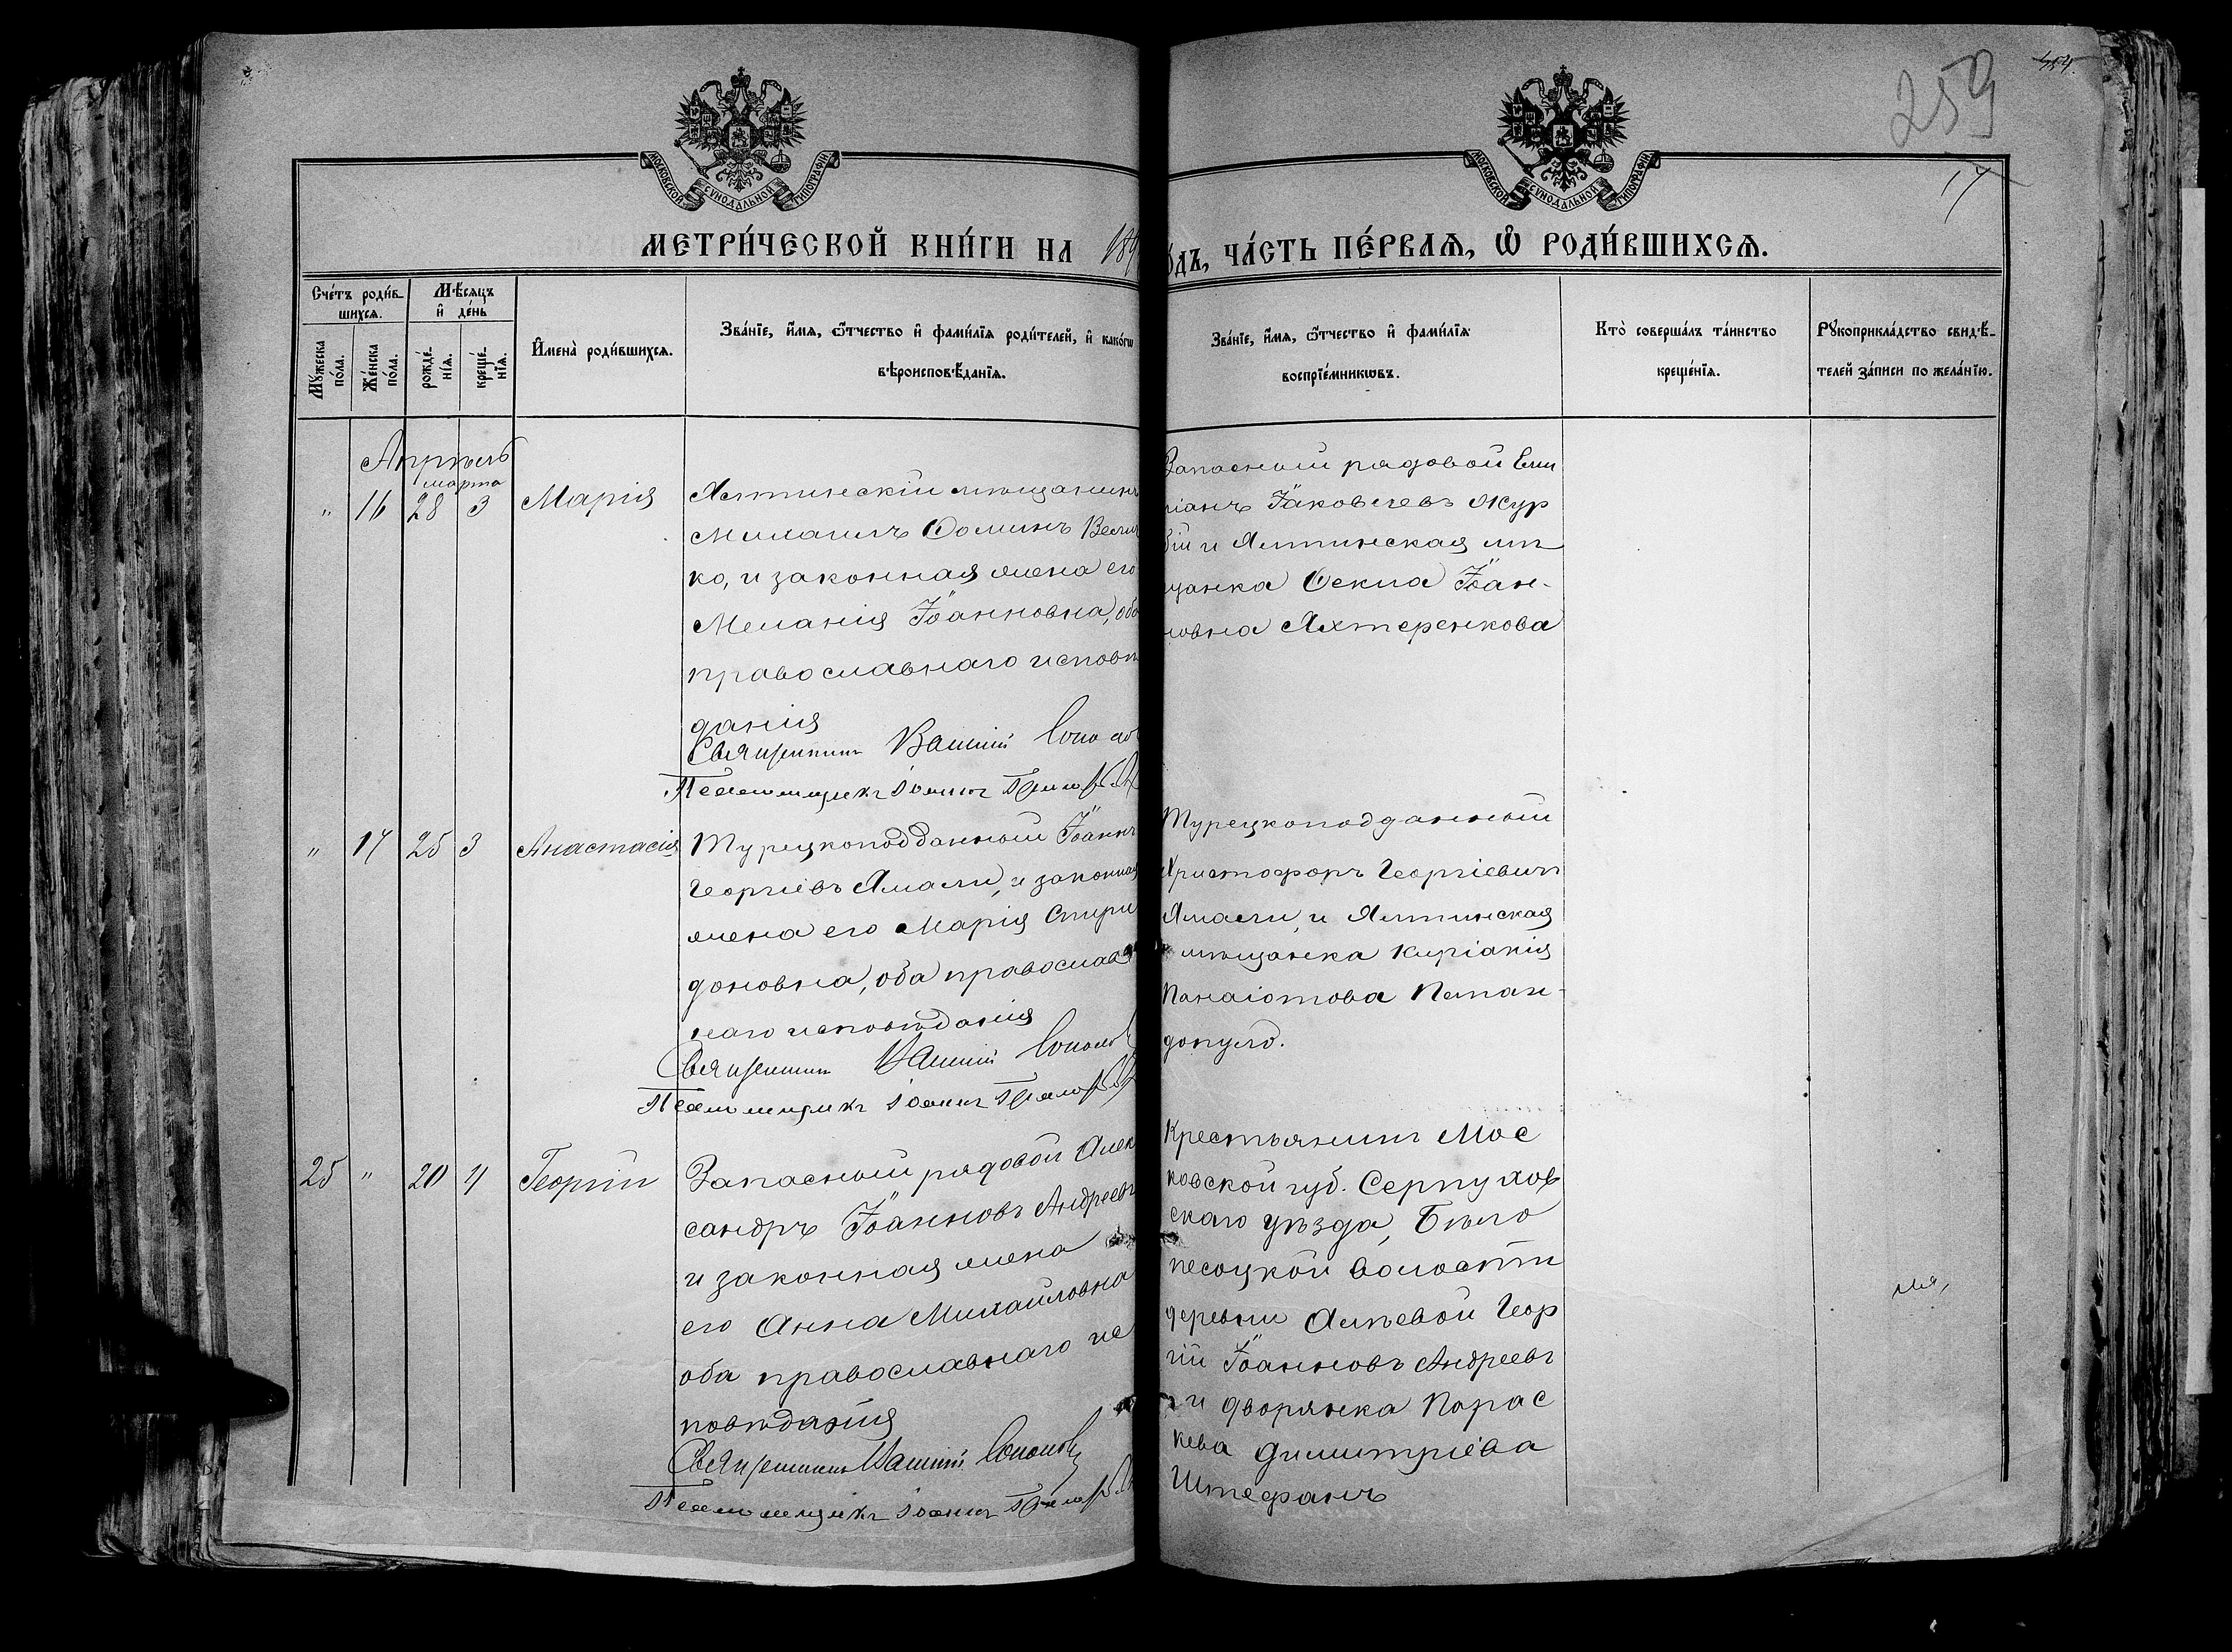 259
154.
17
МОСКОВСКОЙ СѴНОДАЛЬНОЙ ТИПОГРАФІИ
МОСКОВСКОЙ СѴНОДАЛЬНОЙ ТИПОГРАФІИ
МЕТРИ́ЧЕСКОЙ КНИ́ГИ НА 189
о́дъ, ча́сть пе́рваѧ, ѽ роди́вшихсѧ.
Сче́тъ роди́в-
шихсѧ.
Мѣ́сѧцъ
и҆ де́нь
Мꙋ́жеска
по́ла.
Же́нска
по́ла.
рожде́-
нїѧ.
креще́-
нїѧ.
И҆мена̀ роди́вшихсѧ.
Зва́нїе, и҆́мѧ, ѻ҆́тчество и҆ фами́лїѧ роди́телей, и҆ како́гѡ
вѣроисповѣ́данїѧ.
Зва́нїе, и҆́мѧ, ѻ҆́тчество и҆ фами́лїѧ
воспрїе́мникѡвъ.
Кто̀ соверша́лъ та́инство
креще́нїѧ.
Рꙋкоприкла́дство свидѣ́-
телей за́писи по жела́нїю.
Апрѣль
марта
" 16 28 3 Марія
Ялтинскій мѣщанинъ
Михаилъ Ѳоминъ Велич
ко, и законная жена его
Меланія Іоанновна, оба
православнаго исповѣ
данія
Священникъ Василій
Псаломщикъ Іоаннъ
Запасный рядовой Еми
ліанъ Іаковлевъ Жур
бій и Ялтинская мѣ
щанка Ѳекла Іоан-
новна Яхтеренкова
" 17 25 3 Анастасія
Турецкоподданный Іоаннъ
Георгіевъ Ямали, и законная
жена его Марія Спири
доновна, оба православ
наго исповѣданія
Священникъ Василій
Псаломщикъ Іоаннъ
Турецкоподданный
Христофоръ Георгіевичъ
Ямали, и Ялтинская
мѣщанка Киріакія
Панаіотова Папан-
допуло.
25 " 20 4 Георгій
Запасный рядовой Алек
сандръ Іоанновъ Андреевъ
и законная жена
его Анна Михайловна
оба православнаго ис
повѣданія
Священникъ Василій
Псаломщикъ Іоаннъ
Крестьянинъ Мос
ковской губ. Серпухов
скаго уѣзда, Бѣло
песоцкой волости
деревни Алѣевой Геор
гій Іоанновъ Андреевъ
и дворянка Парас
кева Димитріева
Штефанъ